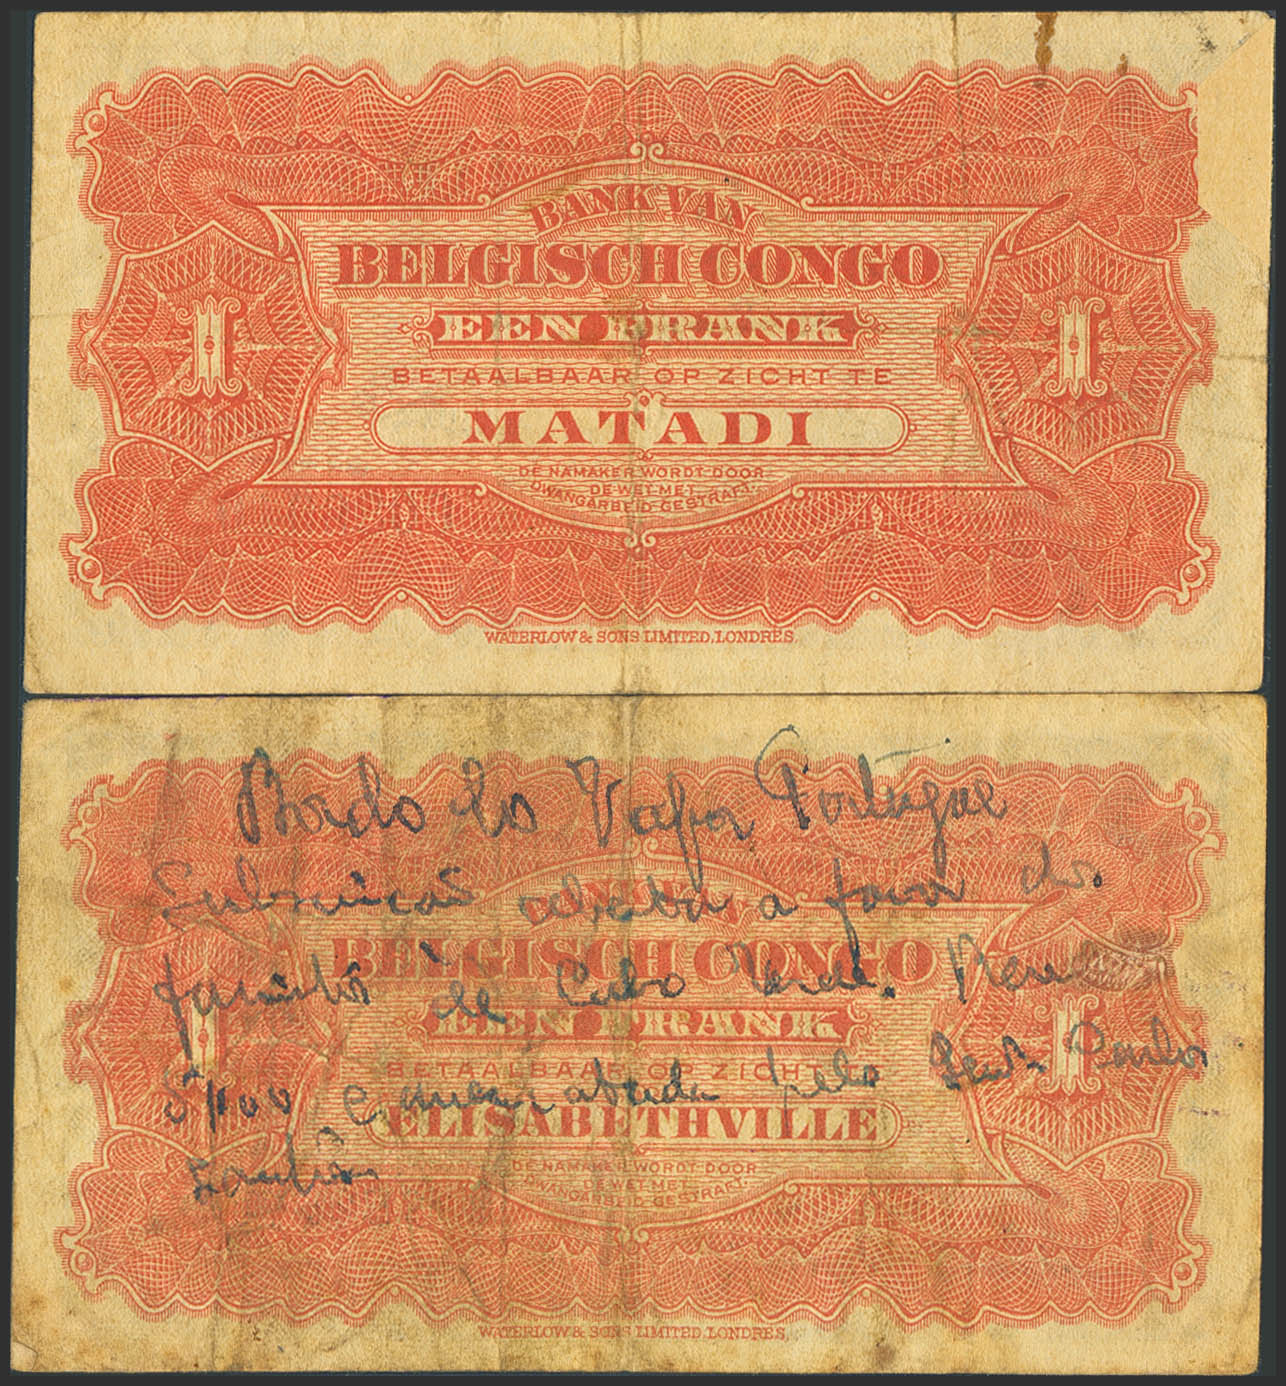 BANK VAN
BELGISCH CONGO
EEN FRANK
1 1
BETAALBAAR OP ZICHT TE
MATADI
DE NAMAKER WORDT DOOR
DE WET MET
DWANGARBEID GESTRAFT.
WATERLOW & SONS LIMITED, LONDRES.
Bordo do Vapor Portugal
a favor do
de Cabo Verde.
pelo
BANK VAN
BELGISCH CONGO
EEN FRANK
1 1
BETAALBAAR OP ZICHT TE
ELISABETHVILLE
DE NAMAKER WORDT DOOR
DE WET MET
DWANGARBEID GESTRAFT.
WATERLOW & SONS LIMITED, LONDRES.